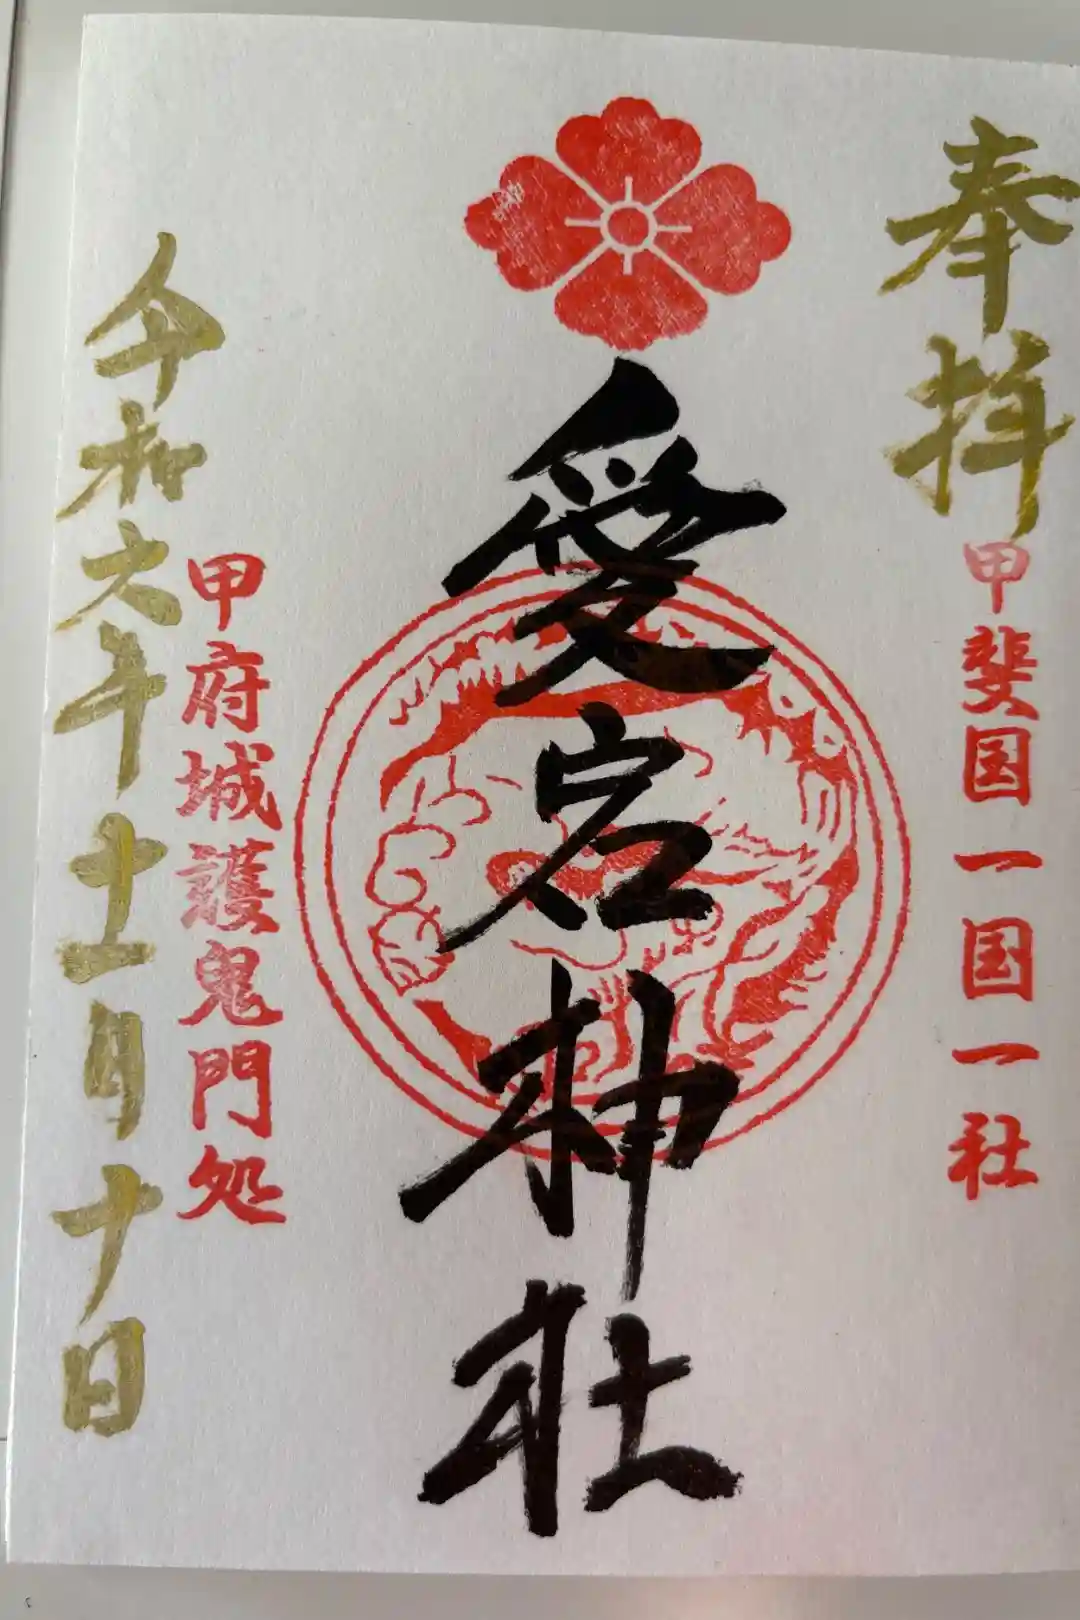 奉拝
甲斐国一国一社
愛宕神社
甲府城護鬼門処
令和六年十一月十日